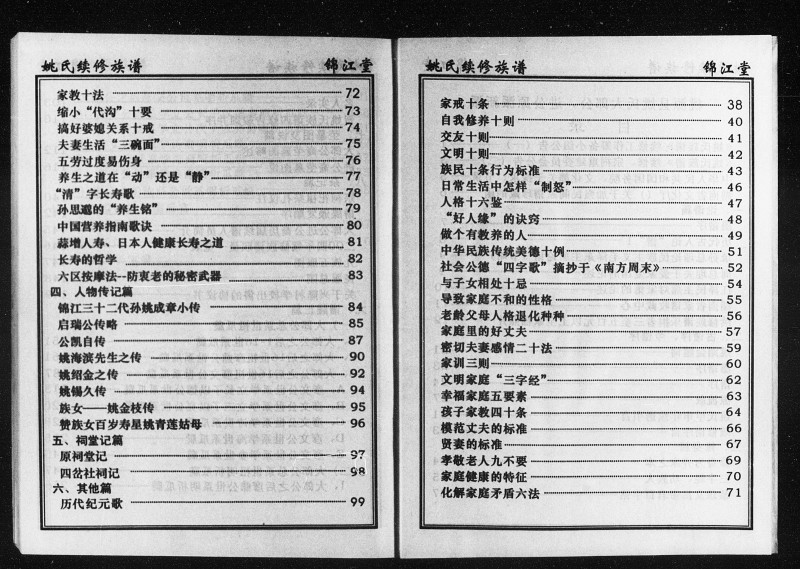 姚氏续修族谱 锦江堂
家教十法 72
缩小“代沟”十要 73
搞好婆媳关系十戒 74
夫妻生活“三碗面” 75
五劳过度易伤身 76
养生之道在“动”还是“静” 77
“清”字长寿歌 78
孙思邈的“养生铭” 79
中国营养指南歌诀 80
蒜增人寿、日本人健康长寿之道 81
长寿的哲学 82
六区按摩法--防衷老的秘密武器 83
四、人物传记篇
锦江三十二代孙姚成章小传 84
启瑞公传略 85
公凯自传 87
姚海滨先生之传 90
姚绍金之传 92
姚锡久传 94
族女——姚金枝传 95
赞族女百岁寿星姚青莲姑母 96
五、祠堂记篇
原祠堂记 97
四岔社祠记 98
六、其他篇
历代纪元歌 99
姚氏续修族谱 锦江堂
家戒十条 38
自我修养十则 40
交友十则 41
文明十则 42
族民十条行为标准 43
日常生活中怎样“制怒” 46
人格十六鉴 47
“好人缘”的诀窍 48
做个有教养的人 49
中华民族传统美德十例 51
社会公德“四字歌”摘抄于《南方周末》 52
与子女相处十忌 54
导致家庭不和的性格 55
老龄父母人格退化种种 56
家庭里的好丈夫 57
密切夫妻感情二十法 59
家训三则 60
文明家庭“三字经” 62
幸福家庭五要素 63
孩子家教四十条 64
模范丈夫的标准 66
贤妻的标准 67
孝敬老人九不要 69
家庭健康的特征 70
化解家庭矛盾六法 71